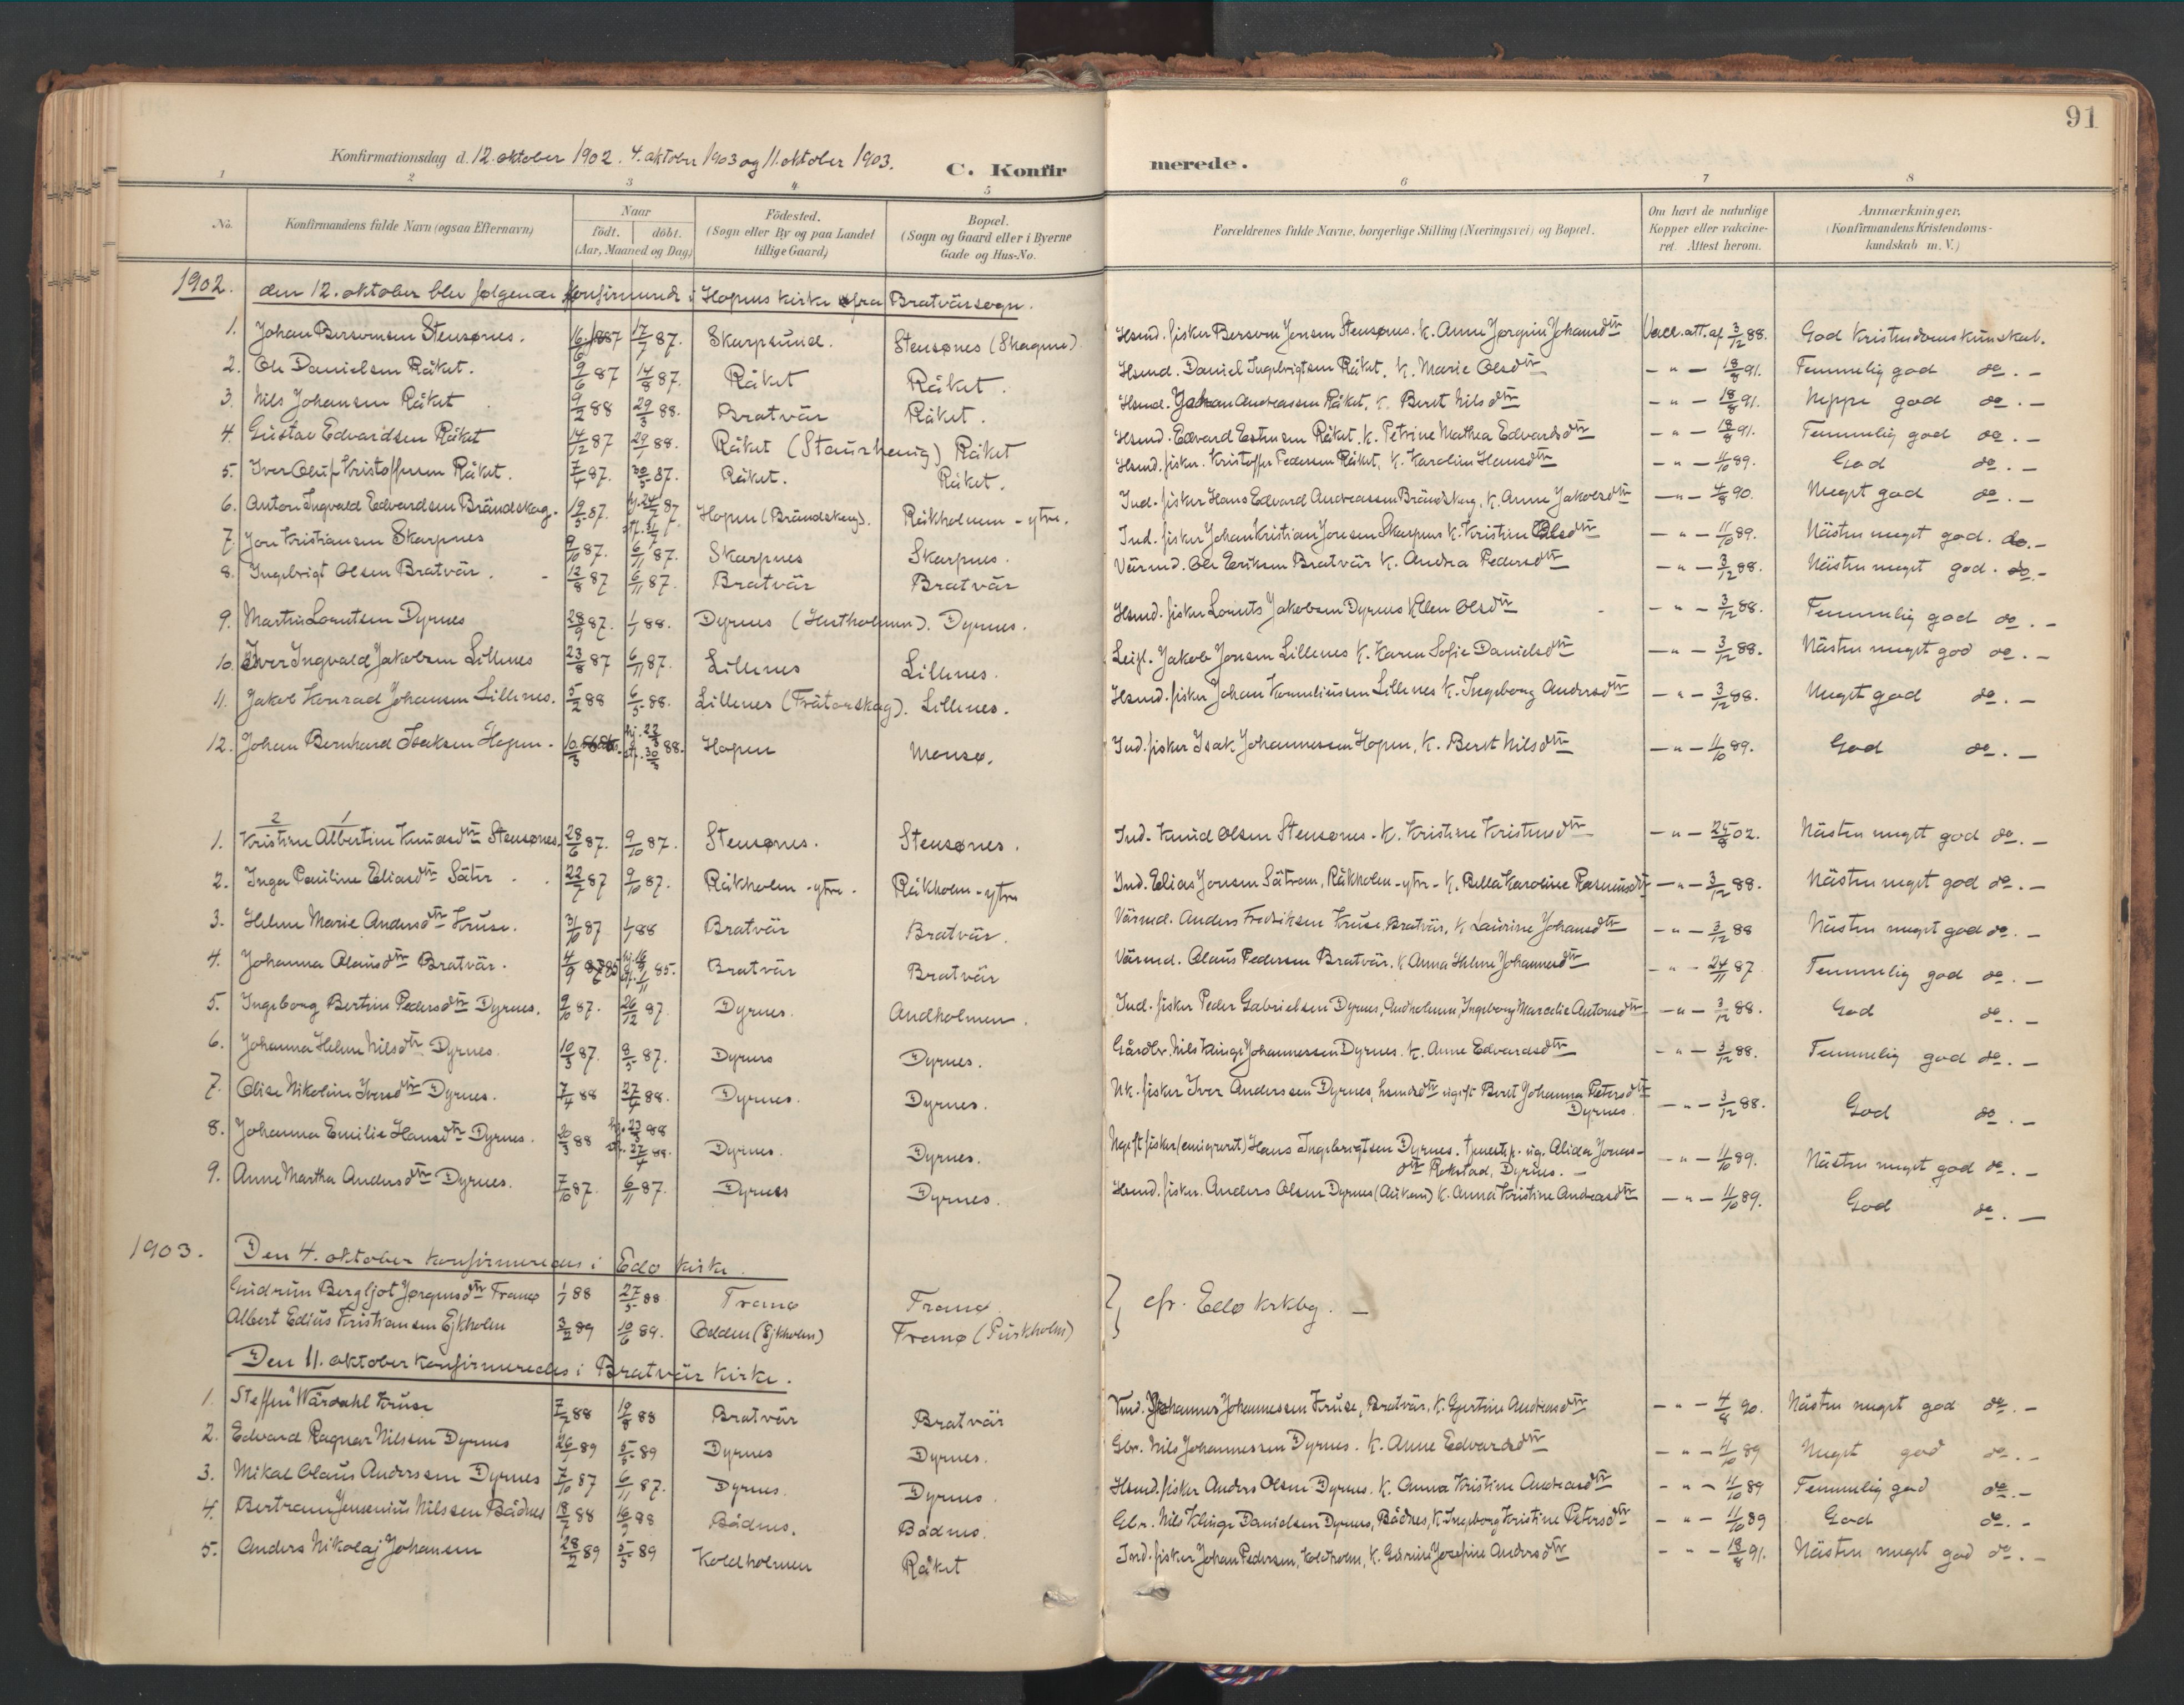 91
Konfirmationsdag d. 12. oktober 1902. 4. oktober 1903 og 11. oktober 1903.
C. Konfirmerede.
1 2 3 4 5 6 7 8
No. Konfirmandens fulde Navn (ogsaa Efternavn) Naar født. døbt. (Aar, Maaned og Dag) Fødested. (Sogn eller By og paa Landet tillige Gaard) Bopæl. (Sogn og Gaard eller i Byerne Gade og Hus-No. Forældrenes fulde Navne, borgerlige Stilling (Næringsvei) og Bopæl. Om havt de naturlige Kopper eller vakcineret. Attest herom. Anmærkninger. (Konfirmandens Kristendomskundskab m. V.)
1902. den 12. oktober blev følgende konfirmeret i Hopens kirke fra Bratvär sogn.
1. Johan Bersvensen Stensønes. 16/6 1887 17/7 87. Skarpsund. Stensønes (Skagene) Hsmd. fisker Bersven Jensen Stensønes. K. Anne Jørgine Johansdtr Vacc. att. af 3/12 88. God Kristendomskunskab.
2. Ole Danielsen Råket. 9/6 87 14/8 87. Råket Råket. Hsmd. Daniel Ingebrigtsen Råket, K. Marie Olsdtr - " - 18/8 91. Temmelig god do. -
3. Nils Johansen Råket 9/2 88 29/3 88. Bratvär Råket. Hsmd. Johan Andreassen Råket, K. Beret Nilsdtr - " - 18/8 91. Neppe god do. -
4. Gustav Edvardsen Råket 14/12 87 29/1 88. Råket (Staurhaug) Råket Hsmd. Edvard Estensen Råket. K. Petrine Mathea Edvardsdtr - " - 18/8 91. Temmelig god do. -
5. Iver Oluf Kristoffersen Råket. 7/4 87. 30/5 87. Råket. Råket. Hsmd. fisker. Kristoffer Pedersen Råket, K. Karoline Hansdtr - " - 11/10 89. God do. -
6. Anton Ingvald Edvardsen Brändskag. 19/5 87. hj. 24/7 87 stf. 31/7. Hopen (Brändskag). Råkholmen - ytre. Ind. fisker Hans Edvard Andreassen Brändskag, K. Anne Jakobsdtr - " - 4/8 90. Meget god do. -
7. Jon Kristiansen Skarpnes 9/10 87. 6/11 87. Skarpnes Skarpnes. Ind. fisker Johan Kristian Jonsen Skarpnes K. Kristine Olsdtr - " - 11/10 89. Nästen meget god. do. -
8. Ingebrigt Olsen Bratvär. 12/8 87 6/11 87. Bratvär Bratvär Värmd. Ole Eriksen Bratvär K. Andrea Pedersdtr - " - 3/12 88. Nästen meget god. do. -
9. Martin Lorntsen Dyrnes 28/9 87. 1/1 88. Dyrnes (Hestholmen). Dyrnes. Hsmd. fisker Lornts Jakobsen Dyrnes K. Elen Olsdtr - " - 3/12 88. Temmelig god do. -
10. Iver Ingvald Jakobsen Lillenes 23/8 87 6/11 87. Lillenes Lillenes. Leigl. Jakob Jonsen Lillenes K. Karen Sofie Danielsdtr - " - 3/12 88. Nästen meget god do. -
11. Jakob Konrad Johansen Lillenes. 5/2 88 6/5 88. Lillenes (Fätarskag). Lillenes. Hsmd. fisker Johan Korneliussen Lillenes K. Ingeborg Andersdtr - " - 3/12 88. Meget god do. -
12. Johan Bernhard Isaksen Hopen. 10/3 88. hj. 22/3 stf. 30/3 88. Hopen Monsø. Ind. fisker Isak Johannessen Hopen, K. Beret Nilsdtr - " - 11/10 89. God do. -
2 1
1. Kristine Albertine Knudsdtr Stensønes. 28/6 87. 9/10 87. Stensønes. Stensønes. Ind. Knud Olsen Stensønes. K. Kristine Kristensdtr - " - 25/8 02. Nästen meget god do. -
2. Inga Pauline Eliasdtr Säter. 22/7 87 9/10 87. Råkholm - ytre. Råkholm - ytre Ind. Elias Jonsen Sätran, Råkholm - ytre - K. Bella Karoline Rasmusdtr - " - 3/12 88. Nästen meget god do. -
3. Helene Marie Andersdtr Kruse. 31/10 87 1/1 88 Bratvär Bratvär. Värmd. Anders Fredriksen Kruse, Bratvär, K. Laurine Johansdtr - " - 3/12 88 Nästen meget god do. -
4. Johanna Olausdtr Bratvär. 4/9 85 85. Bratvär Bratvär Värmd. Olaus Pedersen Bratvär. K. Anna Helene Johannesdtr - " - 24/11 87. Temmelig god do. -
5. Ingeborg Bertine Pedersdtr Dyrnes. 9/10 87. 26/12 87. Dyrnes. Andholmen. Ind. fisker Peder Gabrielsen Dyrnes, Andholmen, Ingeborg Marcelie Antonsdtr - " - 3/12 88. God do. -
6. Johanna Helene Nilsdtr Dyrnes. 10/3 87. 8/5 87. Dyrnes Dyrnes. Gårdbr. Nils Klinge Johannessen Dyrnes. K. Anne Edvardsdtr - " - 3/12 88. Temmelig god do. -
7. Olise Nikoline Iversdtr Dyrnes. 7/4 88 27/4 88. Dyrnes. Dyrnes. Uk. fisker Iver Anderssen Dyrnes, husmdsdtr ugift Beret Johanna Petersdtr Dyrnes. - " - 3/12 88. God do. -
8. Johanna Emilie Hansdtr Dyrnes. 20/3 88 hj. 23/3 88 stf. 27/4 88. Dyrnes. Dyrnes. Ugift fisker (emigreret) Hans Ingebrigtsen Dyrnes. tjenestep. ug. Alida Jonasdtr Rokstad, Dyrnes. - - " - 11/10 89. Nästen meget god do. -
9. Anne Martha Andersdtr Dyrnes. 7/10 87. 6/11 87. Dyrnes Dyrnes. Hsmd. fisker. Anders Olsen Dyrnes (Aukan) K. Anna Kristine Andreasdtr - " - 11/10 89. God do. -
1903. Den 4. oktober konfirmeredes i Edø kirke.
Gudrun Bergljot Jørgensdtr Tranø 1/1 88 27/5 88 Tranø Tranø.
} cfr. Edø krkbg. -
Albert Edius Kristiansen Ejkholm 3/2 89 10/6 89. Odden (Ejkholm) Tranø (Purkholm)
Den 11. oktober konfirmeredes i Bratvär kirke.
1. Steffen Wärdahl Kruse 7/2 88 19/8 88 Bratvär Bratvär Vmd. Johannes Johannessen Kruse, Bratvär, K. Gjertine Andreasdtr - " - 4/8 90. Nästen meget god do. -
2. Edvard Ragnar Nilssen Dyrnes 26/1 89 5/5 89 Dyrnes Dyrnes. Gbr. Nils Johannessen Dyrnes. K. Anne Edvardsdtr - " - 11/10 89 Meget god do. -
3. Mikal Olaus Anderssen Dyrnes 7/10 87 6/11 87. Dyrnes. Dyrnes. Hsmd. fisker Anders Olsen Dyrnes. K. Anna Kristine Andreasdtr - " - 11/10 89 Temmelig god do. -
4. Bertram Jensenius Nilssen Bådnes 18/7 88 16/9 88 Bådnes. Bådnes. Gbr. Nils Klinge Danielsen Dyrnes, Bådnes, K. Ingeborg Kristine Petersdtr - " - 11/10 89 God do. -
5. Anders Nikolaj Johansen 28/2 89 5/5 89 Koldholmen Råket Ind. fisker Johan Pedersen, Koldholm, K. Gurine Josefine Andersdtr - " - 18/8 91. Nästen meget god do. -